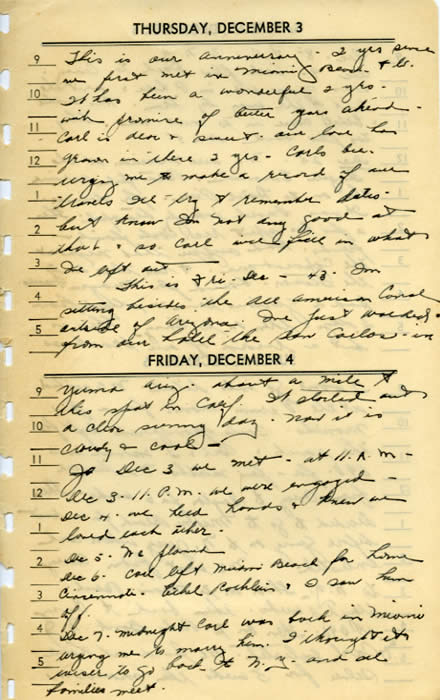 THURSDAY, DECEMBER 3
9 This is our anniversary - 2 yrs since
we first met in Miami Beach
10 It has been a wonderful 2 yrs -
with promise of better years ahead -
11 Carl is dear & sweet - our love has
12 grown in these 2 yrs - Carl's
urging me to make a record of our
1 travels I'll try to remember dates -
2 but know I'm not any good at
that - so Carl will fill in what
3 I've left out
This is Fri - Dec - 43 - I'm
4 sitting besides the All American Canal
5 outside of Arizona. I've just walked
from our hotel the San Carlos - in
FRIDAY, DECEMBER 4
9 Yuma Ariz - about a mile to
this spot in Calif. It started out
10 a clear sunny day - now it is
cloudy & cool -
11 Dec 3 we met - at 11 A.M -
12 Dec 3 - 11 P.M. we were engaged -
Dec 4 - we held hands & knew we
1 loved each other -
2 Dec 5 - We planned
Dec 6 - Carl left Miami Beach for home
3 Cincinnati - Ethel Rochlin & I saw him
off.
4 Dec 7 - midnight Carl was back in Miami
urging me to marry him. I thought it
5 wiser to go back to N.Y. - and
families meet.